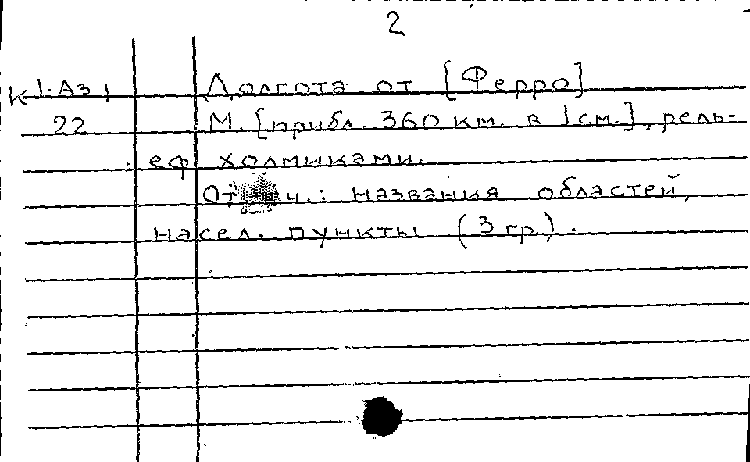 2
К 1-Аз 1 Долгота от [Ферро]
22 М. [прибл. 360 км. в 1 см.], рель-
еф холмиками.
ч.: названия областей,
насел. пункты (3 гр).